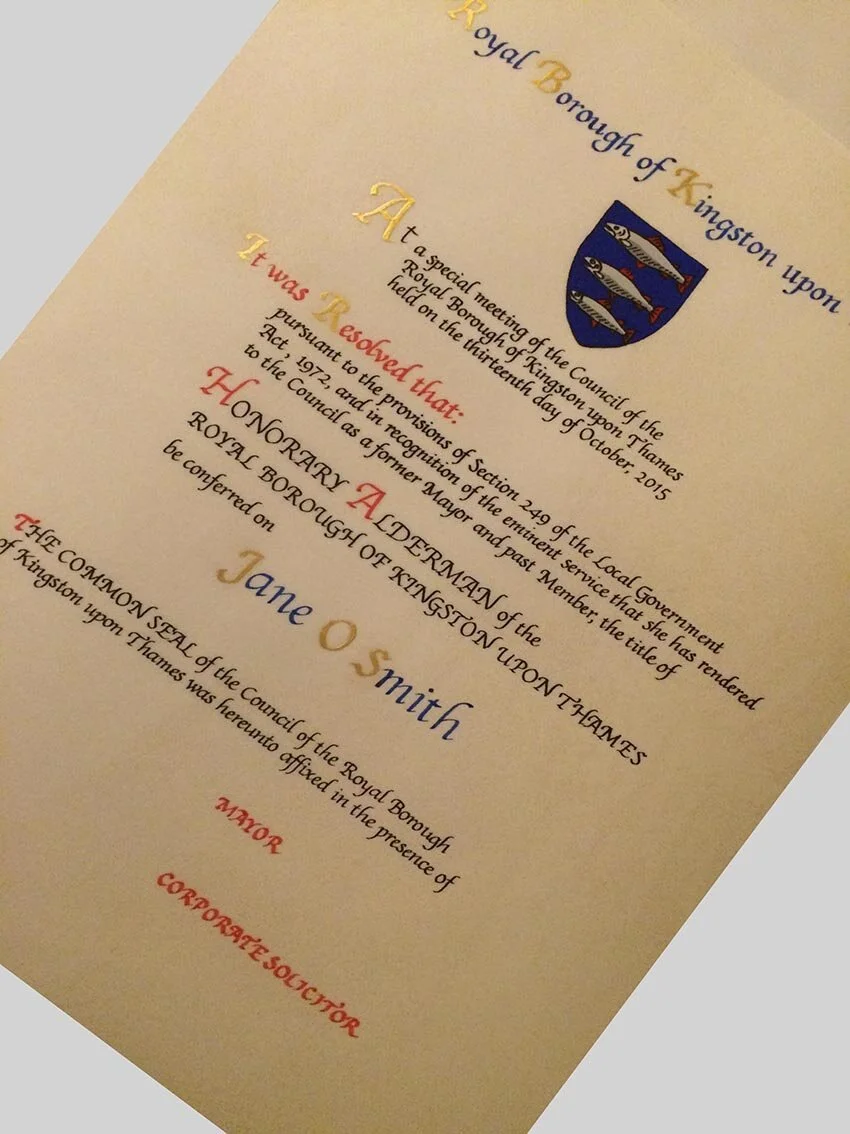 Royal Borough of Kingston upon
At a special meeting of the Council of the
Royal Borough of Kingston upon Thames
held on the thirteenth day of October, 2015
It was Resolved that:
pursuant to the provisions of Section 249 of the Local Government
Act, 1972, and in recognition of the eminent service that she has rendered
to the Council as a former Mayor and past Member, the title of
HONORARY ALDERMAN of the
ROYAL BOROUGH OF KINGSTON UPON THAMES
be conferred on
Jane O Smith
THE COMMON SEAL of the Council of the Royal Borough
of Kingston upon Thames was hereunto affixed in the presence of
MAYOR
CORPORATE SOLICITOR